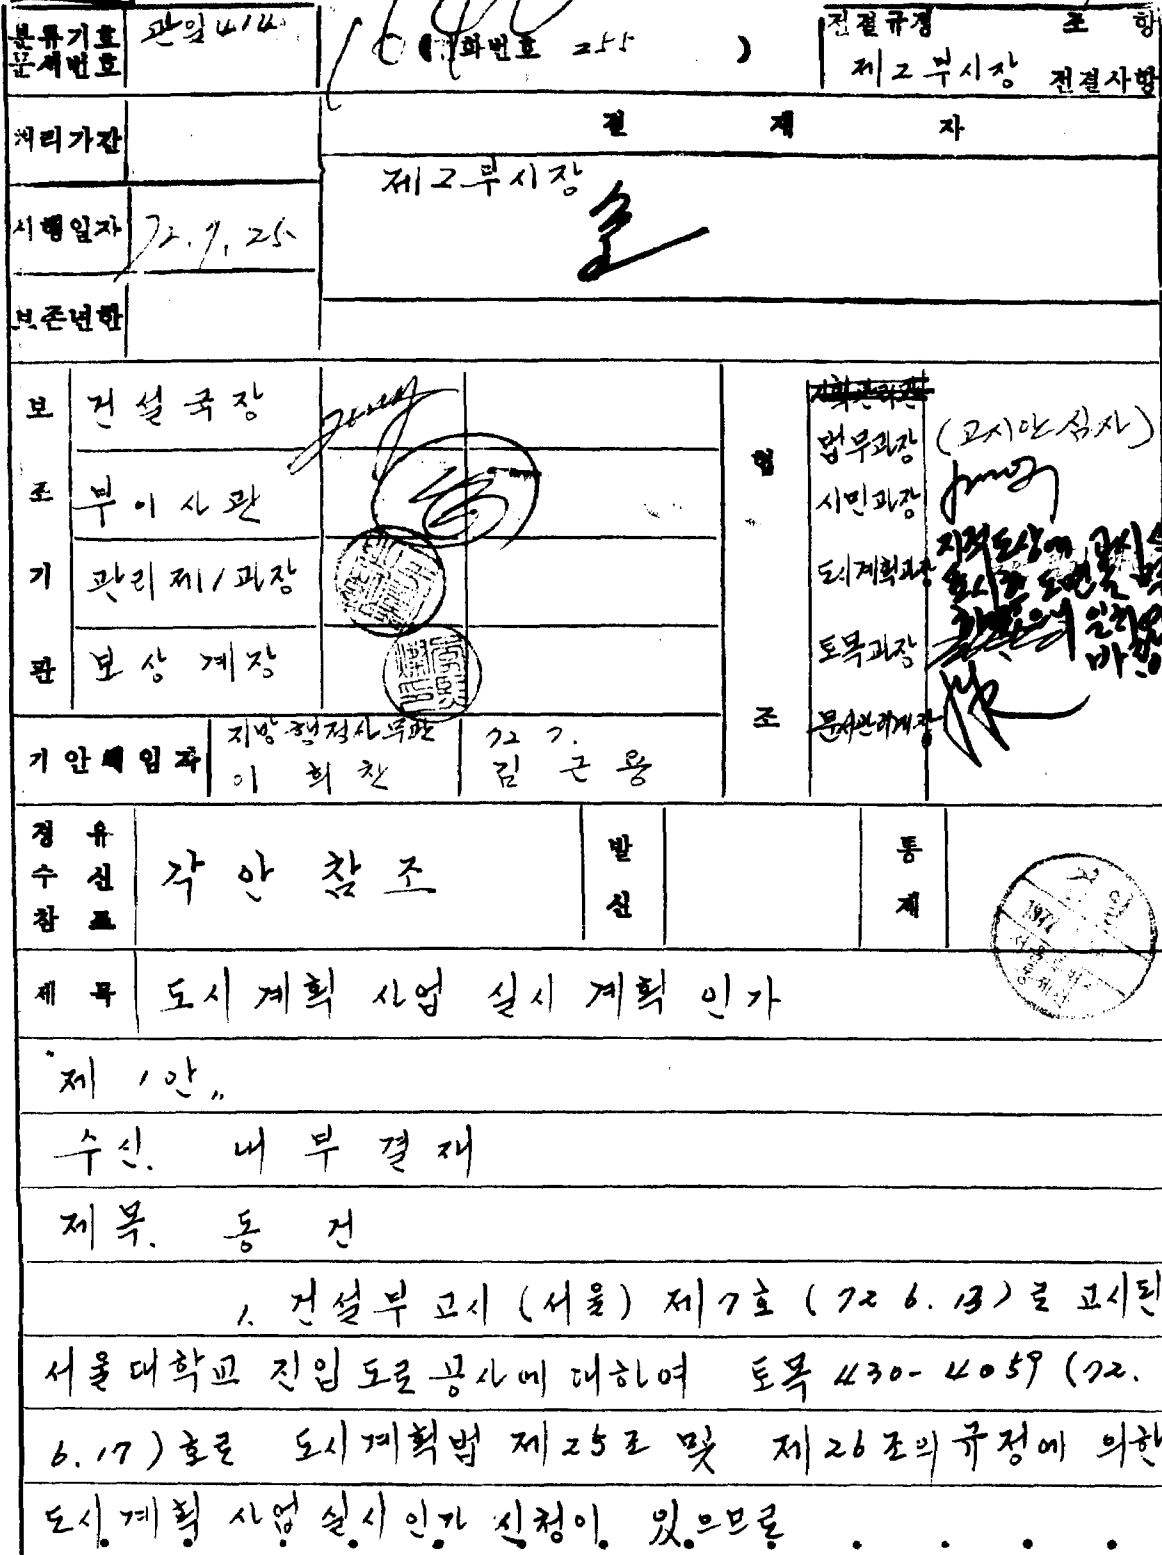 분류기호
문서번호
관일 414
화번호 255 )
전결규정 조 항
제2부시장 전결사항
처리기간
결 재 자
제2부시장
시행일자
72.7.25
보존년한
보 조 기 관
건설국장
부이사관
관리제1과장
보상계장
협 조
법무과장 (고시안심사)
시민과장
도시계획과장
토목과장
문서관리계장
기안책임자
지방행정사무관
이희찬
72 7.
김근용
경유
수신
참조
각안 참조
발신
통제
제목
도시계획 사업 실시 계획 인가
"제 1안"
수신. 내부결재
제목. 동 건
1. 건설부 고시 (서울) 제7호 (72 6.13)로 고시된
서울대학교 진입도로공사에 대하여 토목 430-4059 (72.
6.17)호로 도시계획법 제25조 및 제26조의 규정에 의한
도시계획 사업 실시인가 신청이 있으므로